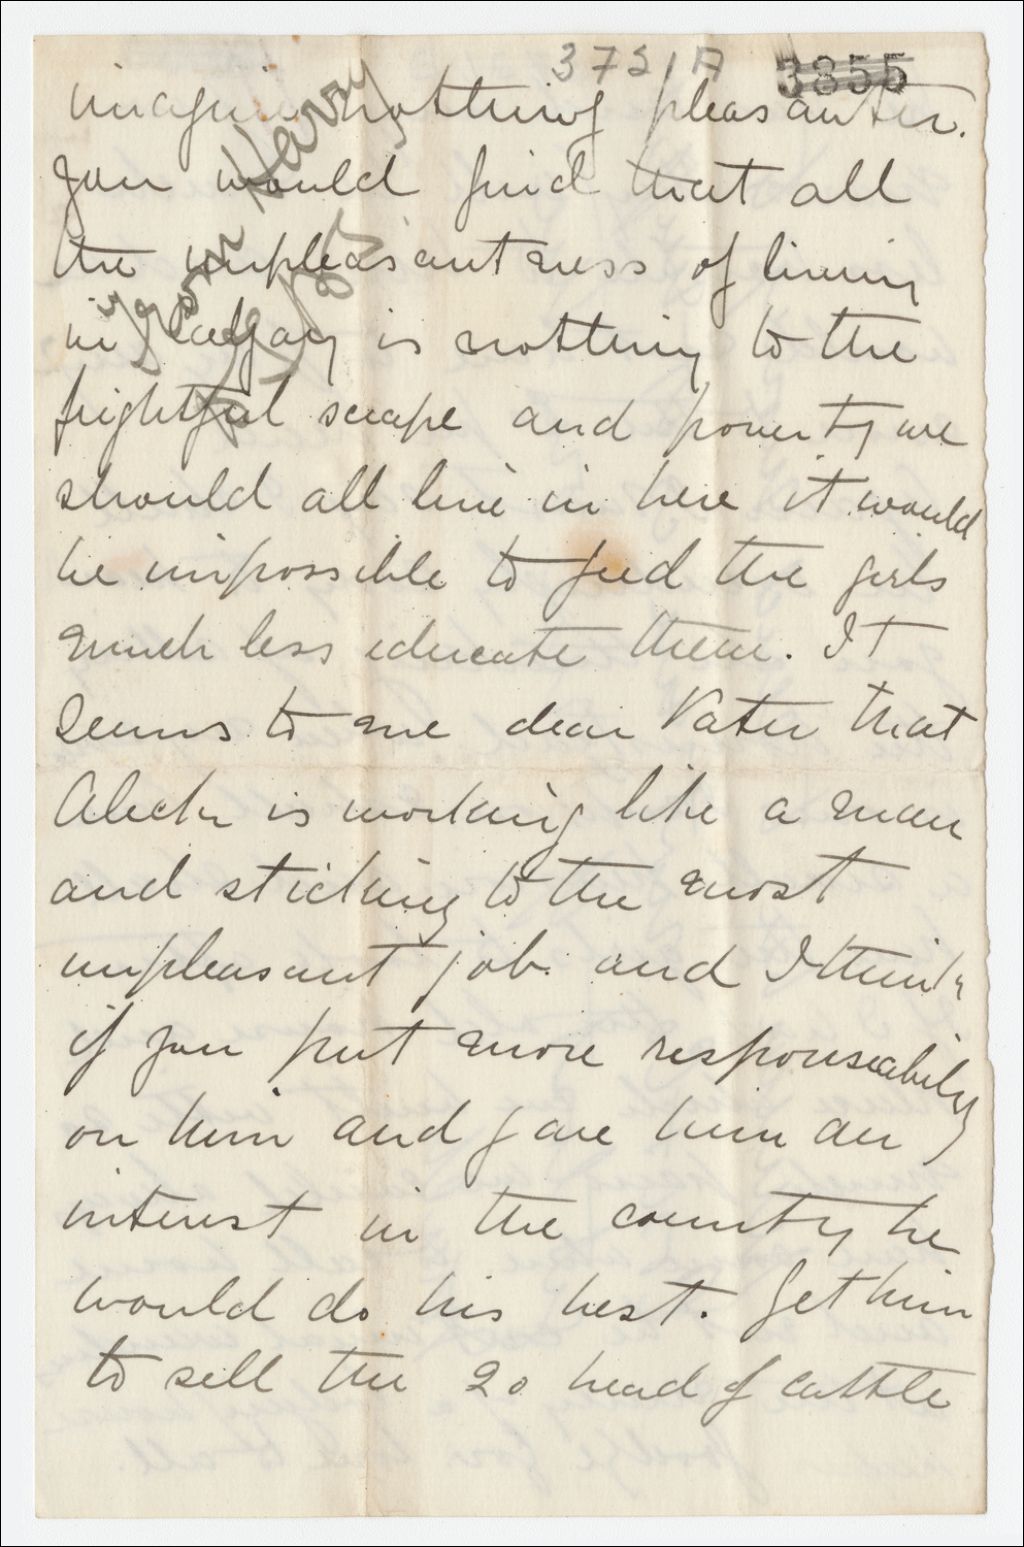 3751A 3855
imagine nothing pleasanter.
you would find that all
the unpleasantness of living
in Calgary is nothing to the
frightful scrape and poverty we
should all live in here it would
be impossible to feed the girls
much less educate them. It
seems to me dear Vater that
Aleck is working like a man
and sticking to the most
unpleasant job and I think
if you put more responseability
on him and gave him an
interest in the country he
would do his best. Get him
to sell the 20 head of cattle
Harry